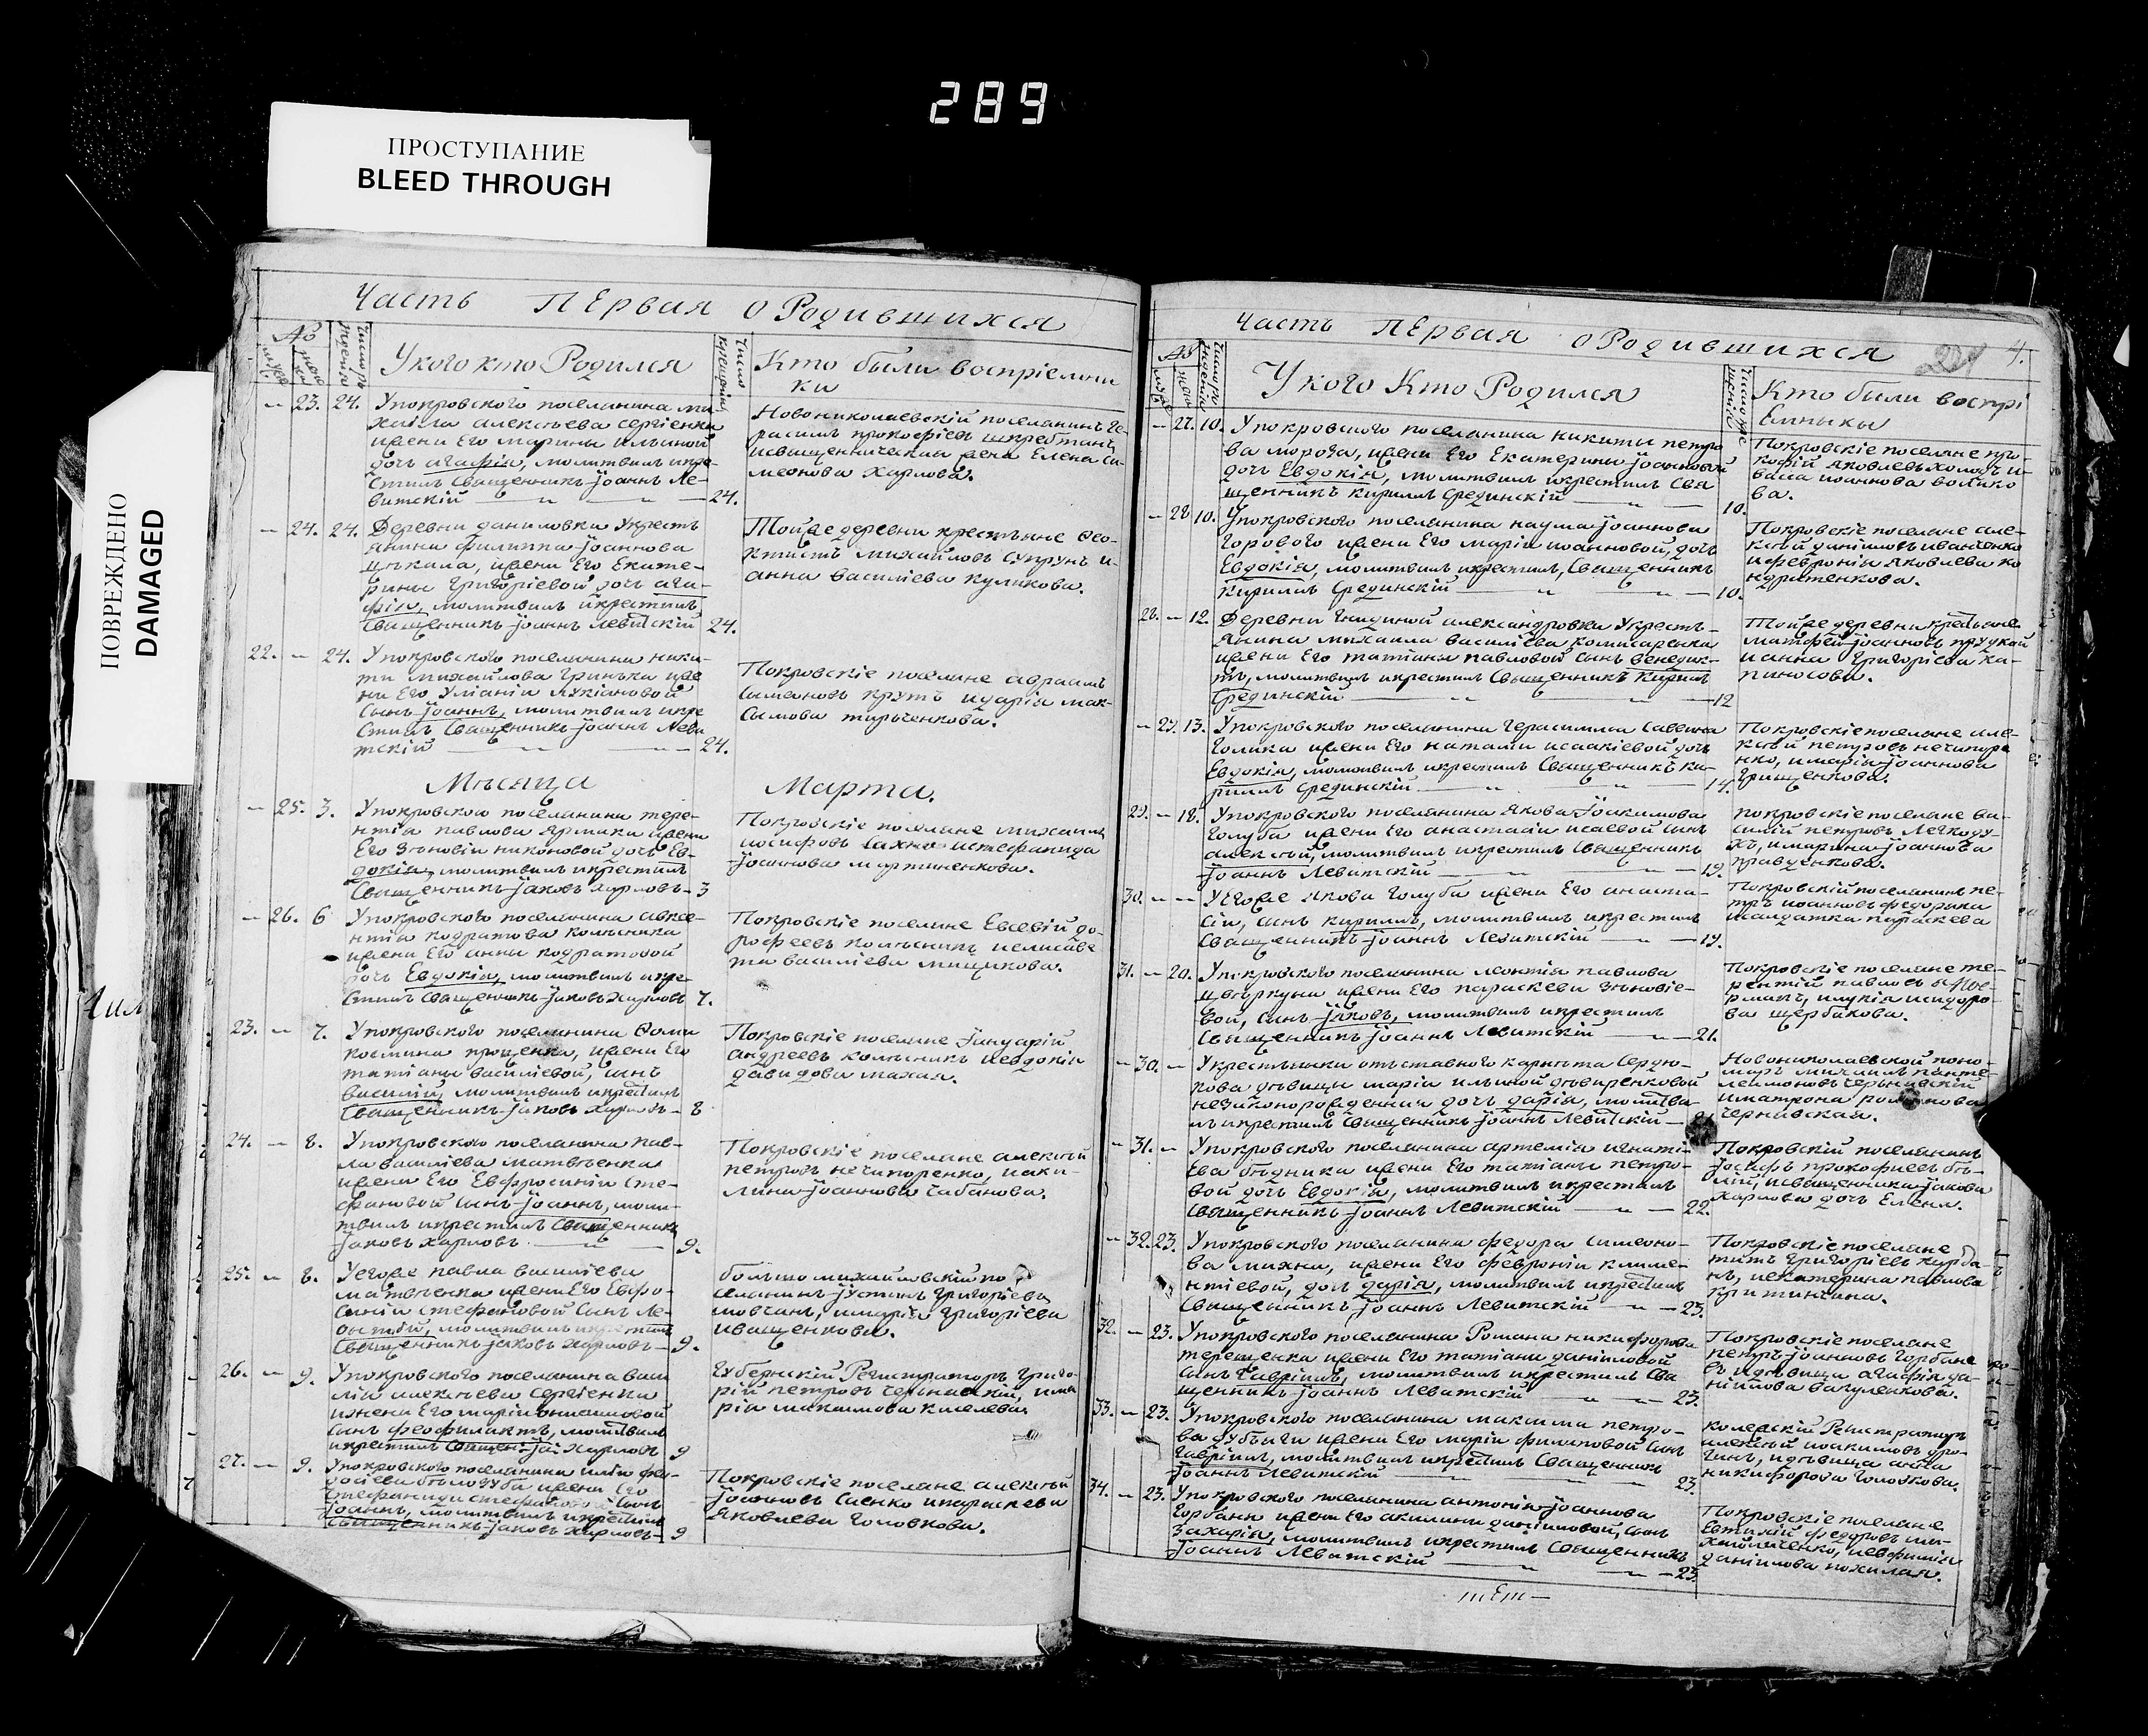 289
ПРОСТУПАНИЕ
BLEED THROUGH
ПОВРЕЖДЕНО
DAMAGED
Часть ПЕрвая О Родившихся
У кого кто Родился
Кто были воспріемни
ки
23. 24. У покровского поселянина ми
хаила алексѣева сергіенка
и жени Его марини ильиной
дочь агафія, молитвилъ и кре-
стилъ Священникъ Іоаннъ Ле-
витскій 24.
Новониколаевскій поселянинъ Ге-
расимъ прокофіевъ
и священническая жена Елена Си-
меонова Харлова.
24. 24. Деревни даниловки У кресть
янина филиппа Іоаннова
и жени Его Екате-
рини григоріевой дочь ага-
фія, молитвилъ и крестилъ
Священникъ Іоаннъ Левитскій 24.
Той же деревни крестьяне Өео-
ктистъ михайловъ супрунъ и
анна василіева куликова.
22. 24. У покровского поселянина ники-
ти михайлова Гринька и же
ни Его Уліаніи лукіановой
Сынъ Іоаннъ, молитвилъ и кре
стилъ Священникъ Іоаннъ Леви
тскій 24.
Покровскіе поселяне адріанъ
Симеоновъ крутъ и дарія мак-
симова
Мѣсяца Марта.
25. 3. У покровского поселянина тере-
нтія павлова ярмака и жени
Его Зѣновіи никоновой дочь Ев-
докія, молитвилъ и крестилъ
Священникъ Іаковъ Харловъ 3
Покровскіе поселяне михаилъ
іосифовъ и стефанида
Іоаннова мартиненкова.
26. 6 У покровского поселянина авксе-
нтія кодратова колѣсника
и жени Его анны кодратовой
дочь Евдокія, молитвилъ и кре-
стилъ Священникъ Іаковъ Харловъ 7.
Покровскіе поселяне Евсевій до-
рофеевъ колѣсникъ и елисаве
та василіева мищикова.
23. 7. У покровского поселянина Өоми
костина прощенка, и жени Его
татіаны василіевой, сынъ
василій, молитвилъ и крестилъ
Священникъ Іаковъ Харловъ 8
Покровскіе поселяне Іануарій
андреевъ колѣсникъ и евдокія
давидова махая.
24. 8. У покровского поселянина пав-
ла василіева матвѣенка
и жени Его Евфросиніи сте-
фановой Сынъ Іоаннъ, моли-
твилъ и крестилъ Священникъ
Іаковъ Харловъ 9.
Покровскіе поселяне алексѣй
петровъ нечипоренко, и аки-
лина Іоаннова Чабанова.
25. 8. У егоже павла василіева
матвѣенка и жени Его Евфро-
синіи стефановой Сынъ Ле-
онтій, молитвилъ и крестилъ
Священникъ Іаковъ Харловъ 9.
больше михайловскій по
селянинъ Іустинъ Григоріевъ
мовчанъ, и марія Григоріева
иващенкова.
26. 9. У покровского поселянина васи
лія алексѣева Сергіенка
и жени Его маріи онисимовой
Сынъ феофилактъ, молитвилъ
и крестилъ Священ: Іак Харловъ 9
Губернскій Регистраторъ Григо-
рій петровъ Чернявскій, и ма
рія максимова киселева.
27. 9. У покровского поселянина иліи
бѣлозуба и жени Его
стефаниди стефановой Сынъ
Іоаннъ, молитвилъ и крестилъ
Священникъ Іаковъ Харловъ 9
Покровскіе поселяне алексѣй
Іоанновъ Саенко и параскева
Яковлева Головкова.
Часть ПЕрвая О Родившихся
4.
У кого Кто Родился
Кто были воспрі
Емники
27. 10. У покровского поселянина никити петро
ва мороза, и жени Его Екатерини Іоанновой
дочь Евдокія, молитвилъ и крестилъ Свя
щенникъ кириллъ Срединскій 10.
Покровскіе поселяне про-
кофій яковлевъ холодъ и
васса іоаннова волико
ва.
28 10. У покровского поселянина наума Іоаннова
Горового и жени Его маріи иоанновой, дочь
Евдокія, молитвилъ и крестилъ, Священникъ
кириллъ Срединскій 10.
Покровскіе поселяне але-
ксѣй даніиловъ иванченко
и февронія яковлева ко
ндратенкова.
28. 12. Деревни Гнидиной александровки У кресть-
янина михаила василіева комисарска
и жени Его татіяни павловой сынъ венедик-
тъ, молитвилъ и крестилъ Священникъ кирилъ
Срединскій 12
Той же деревни крестьяне
матфей Іоанновъ прудкой
и анна Григоріева ка-
пиносова.
29. 13. У покровского поселянина Герасима Саввина
Голика и жени Его наталіи исаакіевой дочь
Евдокія, молитвилъ и крестилъ Священникъ ки-
риллъ Срединскій 14.
Покровскіе поселяне але-
ксѣй петровъ нечипоре
нко, и марія Іоаннова
Грищенкова.
29. 18. У покровского поселянина Якова Іоакимова
Голуба и жени Его анастасіи исаевой Сынъ
алексѣй, молитвилъ и крестилъ Священникъ
Іоаннъ Левитскій 19.
покровскіе поселяне ва-
силій петровъ Легкоду-
хъ, и марина Іоаннова
правденкова.
30. У Егоже Якова Голуба и жени Его анаста-
сіи, Сынъ кириллъ, молитвилъ и крестилъ
Священникъ Іоаннъ Левитскій 19.
Покровскій поселянинъ пе-
тръ иоанновъ федорака
и салдатка параскева
31. 20. У покровского поселянина леонтія павлова
цвѣркуна и жени Его параскеви зѣновіе-
вой, сынъ Іаковъ, молитвилъ и крестилъ
Священникъ Іоаннъ Левитскій 21.
Покровскіе поселяне те-
рентій павловъ
и лукія исидоро-
ва щербакова.
30. У крестьянки отъставного карнета Сердю-
кова дѣвицы маріи ильиной дѣвиренковой
незаконорожденная дочь дарія, молитви-
лъ и крестилъ Священникъ Іоаннъ Левитскій 21.
Новониколаевской поно-
марь михаилъ панте-
леимоновъ Чернявскій
и матрона романова
чернявская.
31. У покровского поселянина артемія игнаті-
Ева бѣдника и жени Его татіани петро-
вой дочь Евдокія, молитвилъ и крестилъ
Священникъ Іоаннъ Левитскій 22.
Покровскій поселянинъ
Іосифъ прокофіевъ бѣ-
лій, и священника Іакова
харлова дочь Елена.
32. 23. У покровского поселянина федора Симеоно-
ва михна, и жени Его февроніи климе-
нтіевой, дочь дарія, молитвилъ и крестилъ
Священникъ Іоаннъ Левитскій 23.
Покровскіе поселяне
титъ Григоріевъ Курба-
нъ, и екатерина павлова
критинина.
32. 23. У покровского поселянина Романа никифорова
терещенка и жени Его татіани даніиловой
Сынъ Гавріилъ, молитвилъ и крестилъ Свя
щенникъ Іоаннъ Левитскій 23.
Покровскіе поселяне
петръ Іоанновъ Горбане
въ и дѣвица агафія да-
ніилова вакуленкова.
33. 23. У покровского поселянина максима петро-
ва дубѣги и жени Его маріи филиповой Сынъ
Гавріилъ, молитвилъ и крестилъ Священникъ
Іоаннъ Левитскій 23.
колежскій Регистраторъ
алексѣй иоакимовъ
и дѣвица анна
никифорова Головкова.
34. 23. У покровского поселянина антонія Іоаннова
Горбаня и жени Его акилини даніиловой, сынъ
Захарія, молитвилъ и крестилъ Священникъ
Іоаннъ Левитскій 23.
Покровскіе поселяне
Евтихій федоровъ ми-
хайличенко, и евфимія
даніилова похилая.